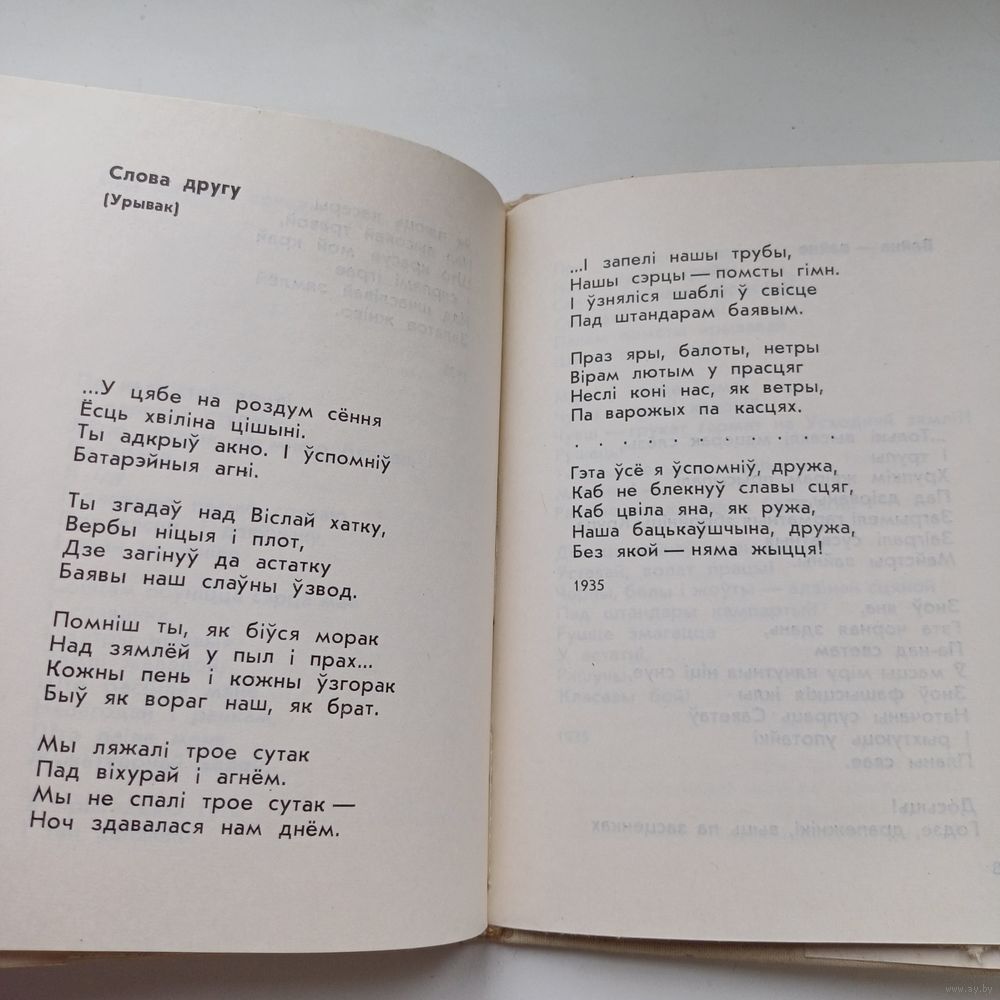 Слова другу
(Урывак)
...У цябе на роздум сёння
Ёсць хвіліна цішыні.
Ты адкрыў акно. І ўспомніў
Батарэйныя агні.
Ты згадаў над Віслай хатку,
Вербы ніцыя і плот,
Дзе загінуў да астатку
Баявы наш слаўны ўзвод.
Помніш ты, як біўся морак
Над зямлёй у пыл і прах...
Кожны пень і кожны ўзгорак
Быў як вораг наш, як брат.
Мы ляжалі трое сутак
Пад віхурай і агнём.
Мы не спалі трое сутак —
Ноч здавалася нам днём.
...І запелі нашы трубы,
Нашы сэрцы — помсты гімн.
І ўзняліся шаблі ў свісце
Пад штандарам баявым.
Праз яры, балоты, нетры
Вірам лютым у прасцяг
Неслі коні нас, як ветры,
Па варожых па касцях.
. . . . . . . . . . . .
Гэта ўсё я ўспомніў, дружа,
Каб не блекнуў славы сцяг,
Каб цвіла яна, як ружа,
Наша бацькаўшчына, дружа,
Без якой — няма жыцця!
1935
www.ay.by